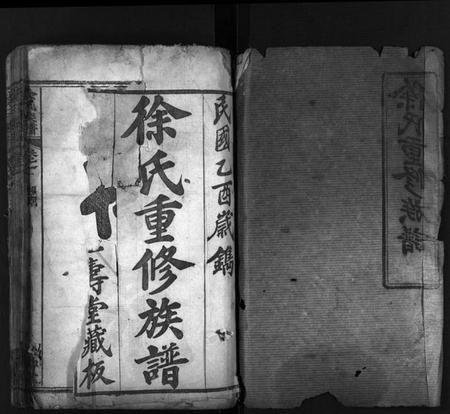 徐氏重修族譜
民國乙酉歲鐫
徐氏重修族譜
堂藏板